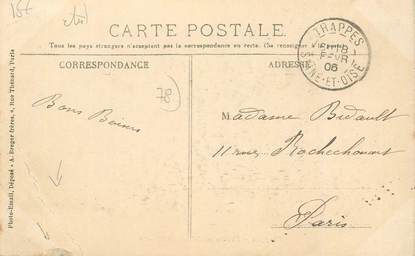 CARTE POSTALE
Tous les pays étrangers n'acceptent pas la correspondance au recto. (Se renseigner à la poste).
CORRESPONDANCE
ADRESSE
TRAPPES
18
FEVR
06
SEINE-ET-OISE
78
Bons Baisers
Madame Bidault
11 rue Rochechouart
Paris
Photo-Email, Déposé - A. Breger frères, 9, Rue Thénard, Paris